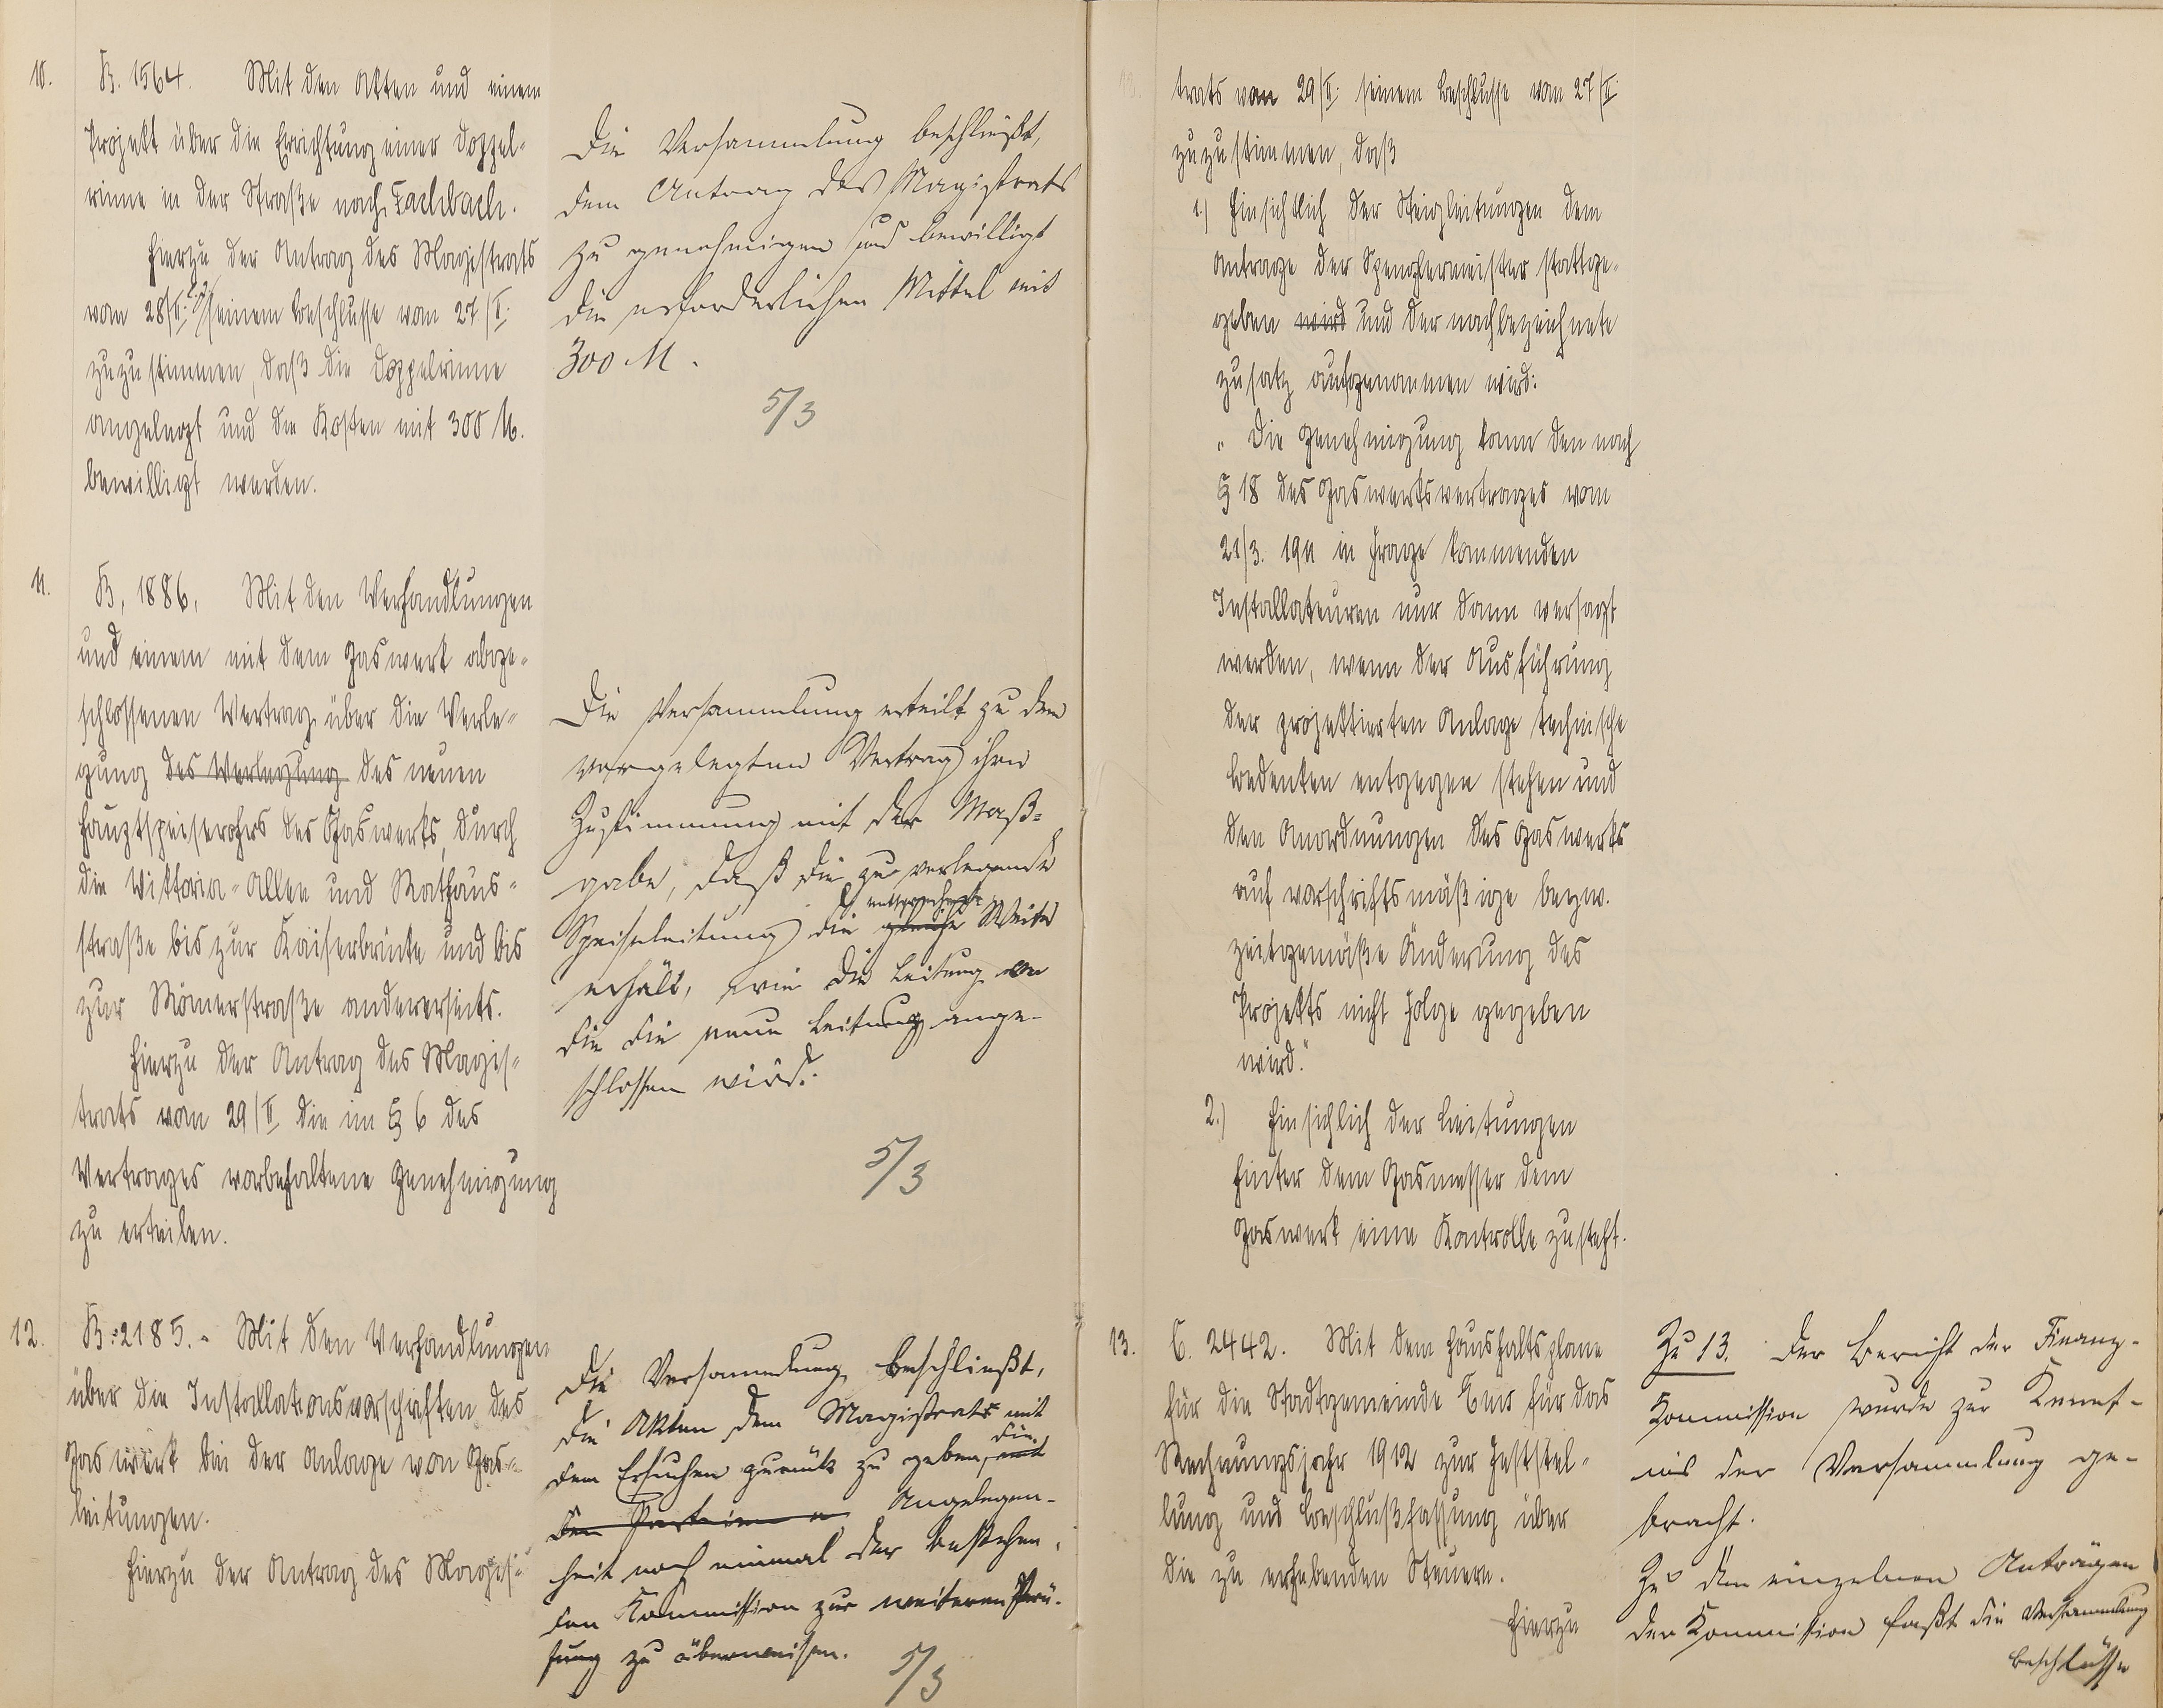 10.
B. 1564. Mit den Akten und einem
Projekt über die Errichtung einer Doppel-
rinne in der Straße nach Fachbach.
Hierzu der Antrag des Magistrats
vom 28/II. seinem Beschlusse vom 27/II.
zuzustimmen, daß die Doppelrinne
angelegt und die Kosten mit 300 M.
bewilligt werden.
Die Versammlung beschließt,
dem Antrag des Magistrats
zu genehmigen und bewilligt
die erforderlichen Mittel mit
300 M.
5/3
11.
B. 1886. Mit den Verhandlungen
und einem mit dem Gaswerk abge-
schlossenen Vertrag über die Verle-
gung des Verlegung des neuen
Hauptspeiserohrs des Gaswerks, durch
die Viktoria-Allee und Rathaus-
straße bis zur Kaiserbrücke und bis
zur Römerstraße andererseits.
Hierzu der Antrag des Magis-
trats vom 29/II die im § 6 des
Vertrages vorbehaltene Genehmigung
zu erteilen.
Die Versammlung erteilt zu dem
vorgelegten Vertrag ihre
Zustimmung mit der Maß-
gabe, daß die zu verlegende
entsprechende
Speiseleitung die gleiche Weite
erhält, wie die Leitung an
die die neue Leitung ange-
schlossen wird.
5/3
12.
B. 2185. Mit den Verhandlungen
über die Installationsvorschriften des
Gaswerk bei der Anlage von Gas-
leitungen.
Hierzu der Antrag des Magis-
Die Versammlung beschließt,
die Akten dem Magistrats mit
dem Ersuchen zurück zu geben, mit
die
den Parteien Angelegen-
heit noch einmal der bestehen-
den Kommission zur weiteren Prü-
fung zu überweisen.
5/3
trats vom 29/II. seinem Beschlusse vom 27/II.
zuzustimmen, daß
1.) Hinsichtlich der Steigleitungen dem
Antrage der Spenglermeister stattge-
geben wird und der nachbezeichnete
Zusatz aufgenommen wird:
„Die Genehmigung kann den nach
§ 18 des Gaswerksvertrages vom
21/3. 1911 in Frage kommenden
Installateuren nur dann versagt
werden, wenn der Ausführung
der projektierten Anlage technische
Bedenken entgegen stehen und
den Anordnungen des Gaswerks
auf vorschriftsmäßige bezw.
zeitgemäße Änderung des
Projekts nicht Folge gegeben
wird."
2.) Hinsichlich der Leitungen
hinter dem Gasmesser dem
Gaswerk eine Kontrolle zusteht.
13.
C. 2442. Mit dem Haushaltsplane
für die Stadtgemeinde Ems für das
Rechnungsjahr 1912 zur Feststel-
lung und Beschlußfassung über
die zu erhebenden Steuern.
Hierzu
Zu 13. Der Bericht der Finanz-
Kommission wurde zur Kennt-
nis der Versammlung ge-
bracht.
Zu den einzelnen Anträgen
der Kommission faßt die Versammlung
Beschlüsse